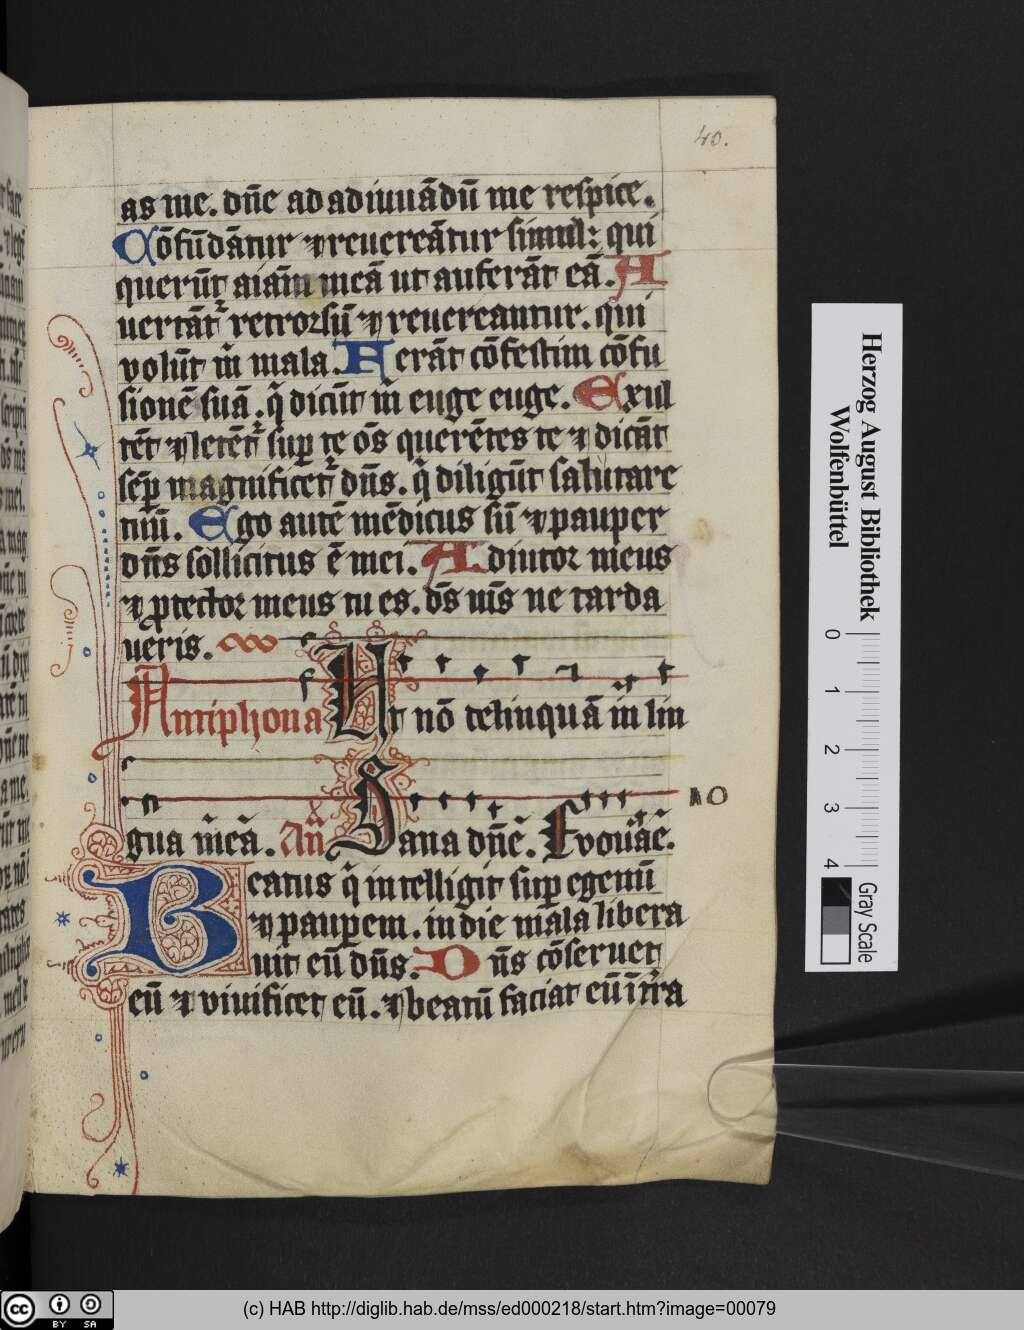 40.
as me. dn̄e ad adiuuādū me respice.
Cōfūdātur ⁊ reuereātur simul: qui
querūt aīam meā ut auferāt eā. A
uertāt᷑ retrorsū ⁊ reuereantur. qui
volūt m̄ mala. Ferāt cōfestim cōfu
sionē suā. q̄ dicūt m̄ euge euge. Exul
tēt ⁊ letēt᷑ sup̄ te ōs querētes te ⁊ dicāt
sēp̄ magnificet᷑ dn̄s. q̄ diligūt salutare
tuū. Ego autē mēdicus sū ⁊ pauper
dn̄s sollicitus ē mei. Adiutor meus
⁊ ꝓtector meus tu es. d̄s m̄s ne tarda
ueris.
Antiphona Ut nō delinquā in lin
gua mēa. An̄ Sana dn̄e. Euouae.
10
Beatus q̄ intelligit sup̄ egenū
⁊ paup̄em. in die mala libera
uit eū dn̄s. Dn̄s cōseruet
eū ⁊ viuificet eū. ⁊ beatū faciat eū ī t̄ra
Herzog August Bibliothek
Wolfenbüttel
0 1 2 3 4
Gray Scale
cc BY SA
(c) HAB http://diglib.hab.de/mss/ed000218/start.htm?image=00079